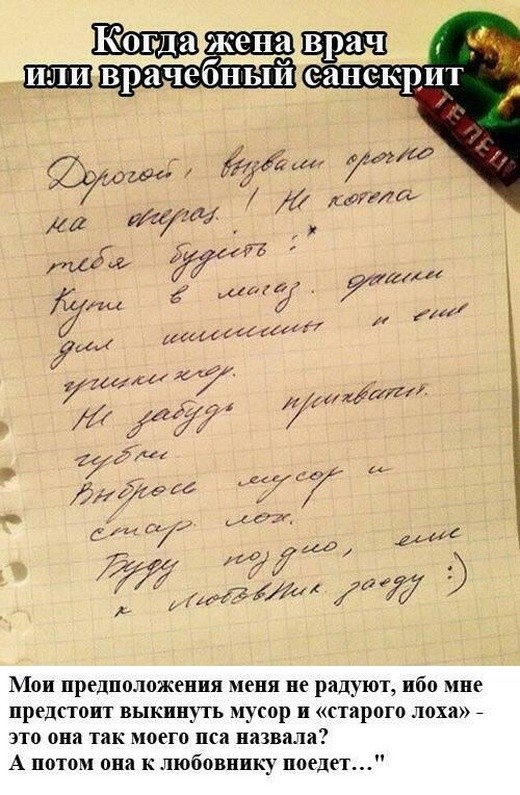 Когда жена врач
или врачебный санскрит
ТЕЛЕЦ
Дорогой, вызвали срочно
на операц. ! Не хотела
тебя будить :*
Купи в магаз.
для и еще
Не забудь прихватит.
губки
Выброси мусор и
стар. лох.
Буду поздно, еще
к любовник заеду :)
Мои предположения меня не радуют, ибо мне
предстоит выкинуть мусор и «старого лоха» -
это она так моего пса назвала?
А потом она к любовнику поедет…"